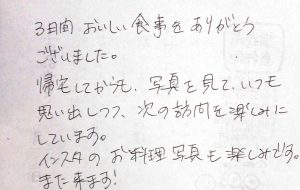 3日間 おいしい食事を ありがとう
ございました。
帰宅してからも、写真を見て、いつも
思い出しつつ、次の訪問を楽しみに
しています。
インスタの お料理写真も 楽しみです。
また来ます!